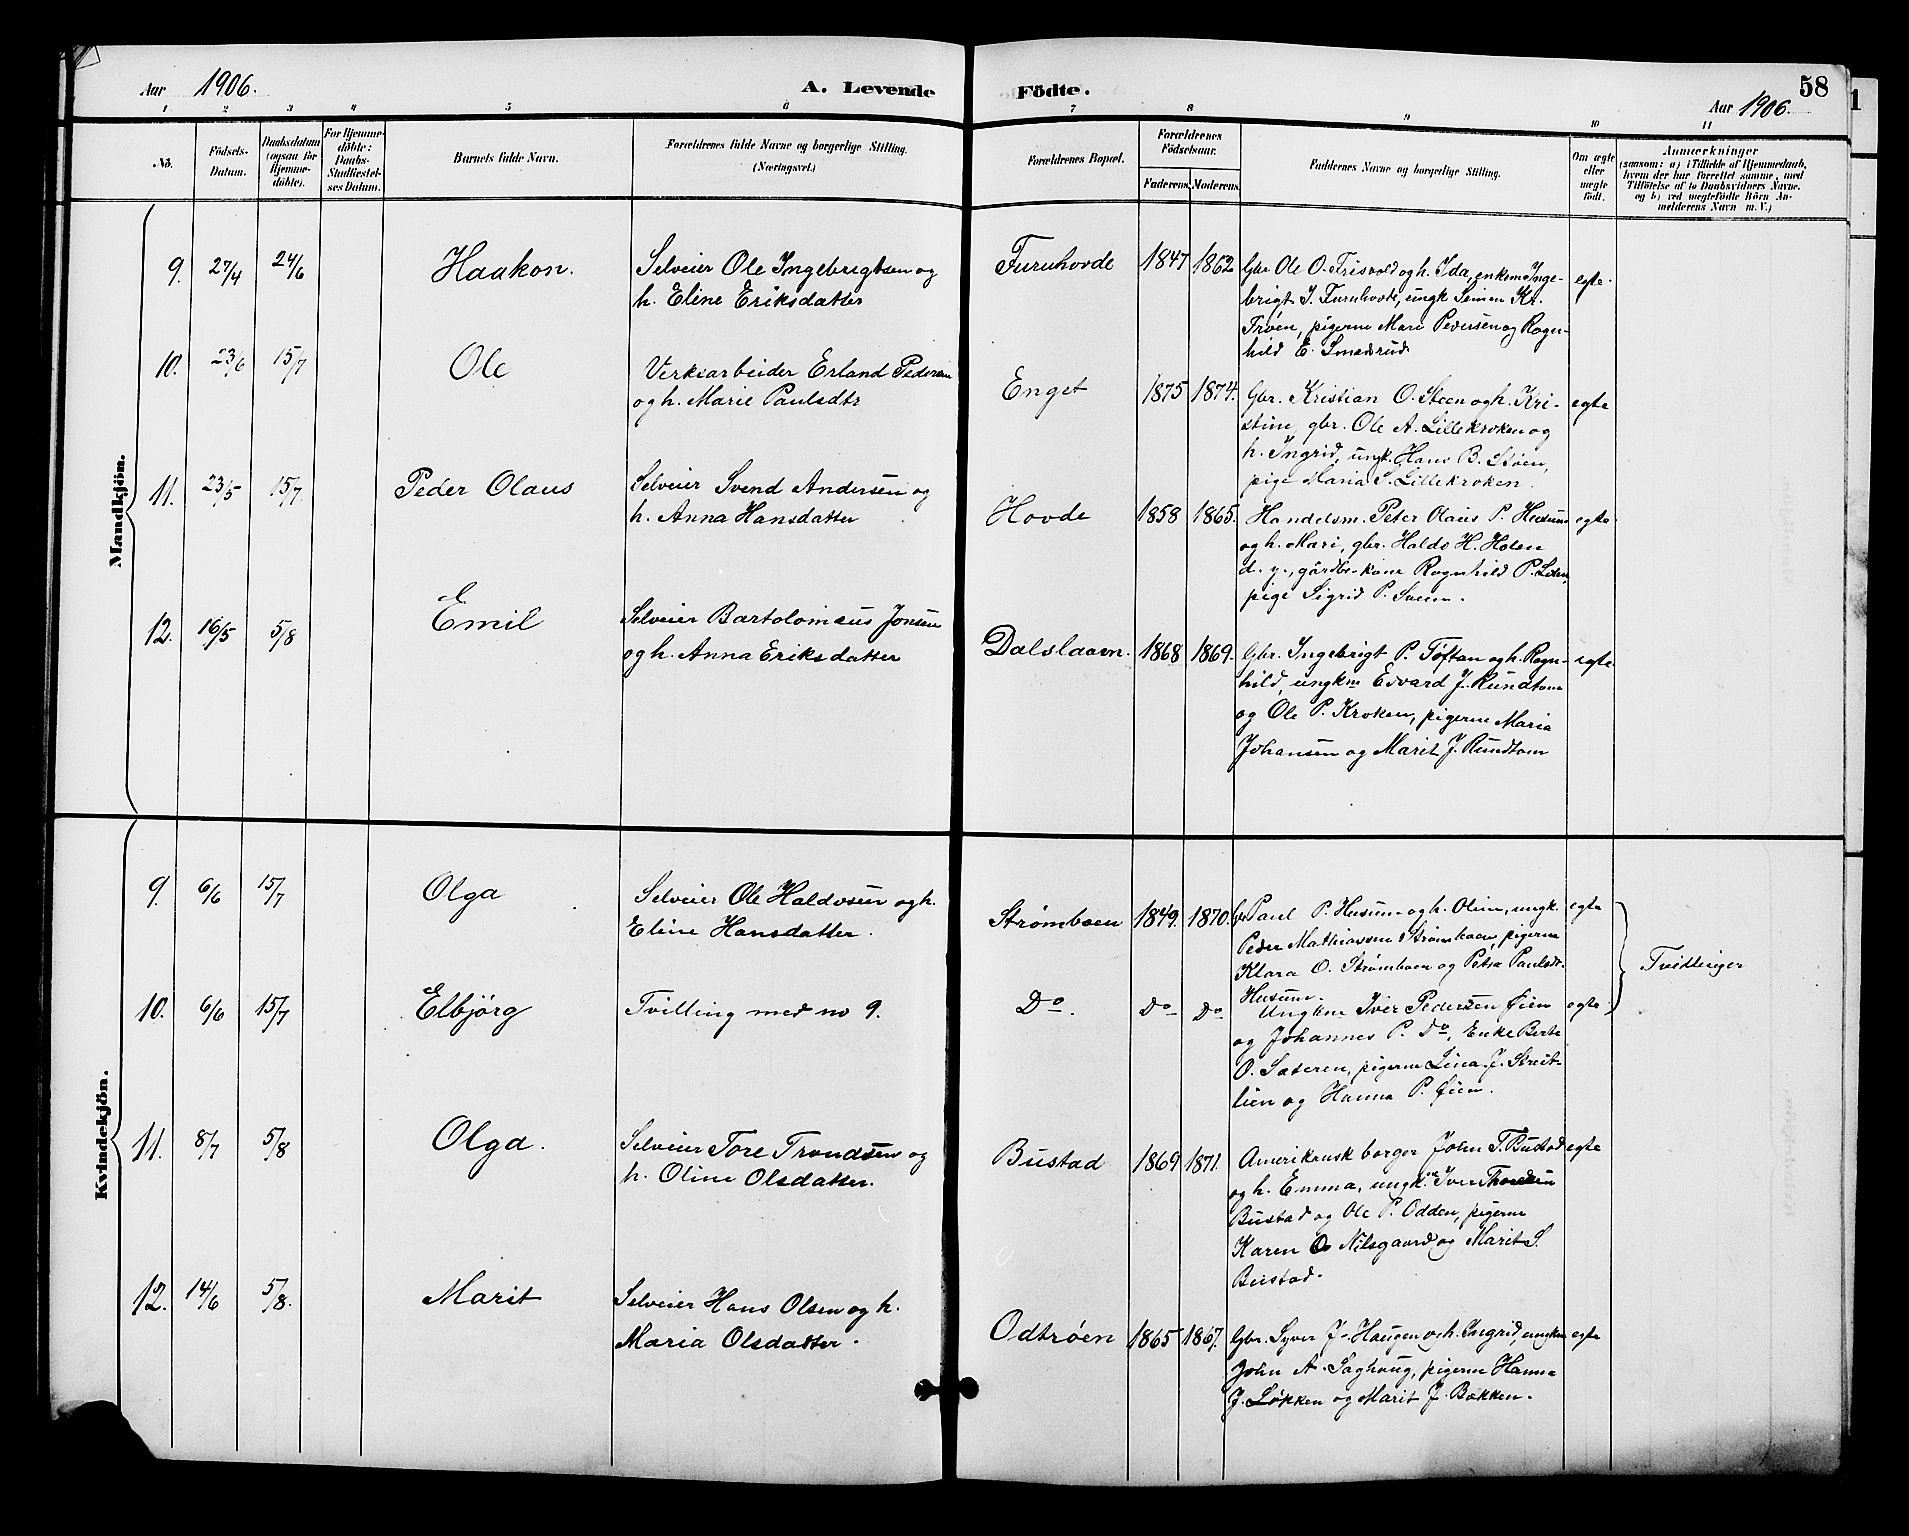 Aar 1906.
A. Levende Födte.
58
Aar 1906.
1 2 3 4 5 6 7 8 9 10 11
No.
Födsels-
Datum.
Daabsdatum
(ogsaa for
Hjemme-
döbte).
For Hjemme-
döbte:
Daabs-
Stadfæstel-
ses Datum.
Barnets fulde Navn.
Forældrenes fulde Navne og borgerlige Stilling.
(Næringsvei.)
Forældrenes Bopæl.
Forældrenes
Födselsaar.
Faderens. Moderens.
Faddernes Navne og borgerlige Stilling.
Om ægte
eller
uægte
födt.
Anmærkninger
(saasom: a) i Tilfælde af Hjemmedaab,
hvem der har forrettet samme, med
Tilföielse af to Daabsvidners Navne.
og b) ved uægtefödte Börn An-
melderens Navn m. V.)
Mandkjön.
9. 27/4 24/6 Haakon.
Selveier Ole Ingebrigtsen og
h. Eline Eriksdatter
Furuhovde 1847 1862
Gbr. Ole O. Frisvold og h. Ida, enkem. Inge-
brigt J. Furuhovde, ungk Simen Kr.
Trøen, pigerne Mari Pedersen og Rogn-
hild E. Smedsrud
egte.
10. 23/6 15/7 Ole
Verksarbeider Erland Pedersen
og h. Marie Paulsdtr
Enget 1875 1874.
Gbr. Kristian O. Steen og h. Kri-
stine, gbr. Ole A. Lillekroken og
h. Ingrid, ungk. Hans B. Støen,
pige Maria S. Lillekroken.
egte
11. 23/5 15/7 Peder Olaus
Selveier Svend Andersen og
h. Anna Hansdatter
Hovde 1858 1865.
Handelsm. Peter Olaus P. Husum
og h. Mari, gbr. Haldo H. Holen
d. y., gårdbr-kone Rognhild P. Liden,
pige Sigrid P. Sveen.
egte
12. 16/5 5/8 Emil
Selveier Bartolomæus Jonsen
og h. Anna Eriksdatter
Dalslaavn. 1868 1869.
Gbr. Ingebrigt P. Tøftan og h. Rogn-
hild, ungkm Edvard J. Rundtom
og Ole P. Kroken, pigerne Maria
Johansen og Marit J. Rundtom
egte
Kvindekjön.
9. 6/6 15/7 Olga
Selveier Ole Haldosen og h.
Eline Hansdatter.
Strømboen 1849. 1870.
Gbr Paul P. Husum og h. Oline, ungk.
Peder Mathiassen Strømboen, pigerne
Klara O. Strømboen og Petra Paulsdt.
Husum.
egte
Tvillinger
10. 6/6 15/7 Elbjørg
Tvilling med no 9.
Do. Do Do
Ungkm Iver Pedersen Øien
og Johannes P. Do, Enke Berte
O. Sæteren, pigerne Lina J. Streit-
lien og Hanna P. Øien.
egte
11. 8/7 5/8 Olga.
Selveier Tore Trondsen og
h. Oline Olsdatter.
Bustad 1869 1871.
Amerikansk borger John T. Bustad
og h. Emma, ungk. Iver Thoresen
Bustad og Ole P. Odden, pigerne
Karen O Nilsgaard og Marit S.
Bustad.
egte
12. 14/6 5/8. Marit
Selveier Hans Olsen og h.
Maria Olsdatter.
Odtrøen 1865 1867.
Gbr. Syver J. Haugen og h. Ingrid, ungkm
John A. Saghaug, pigerne Hanna
J. Løkken og Marit J. Bækken.
egte